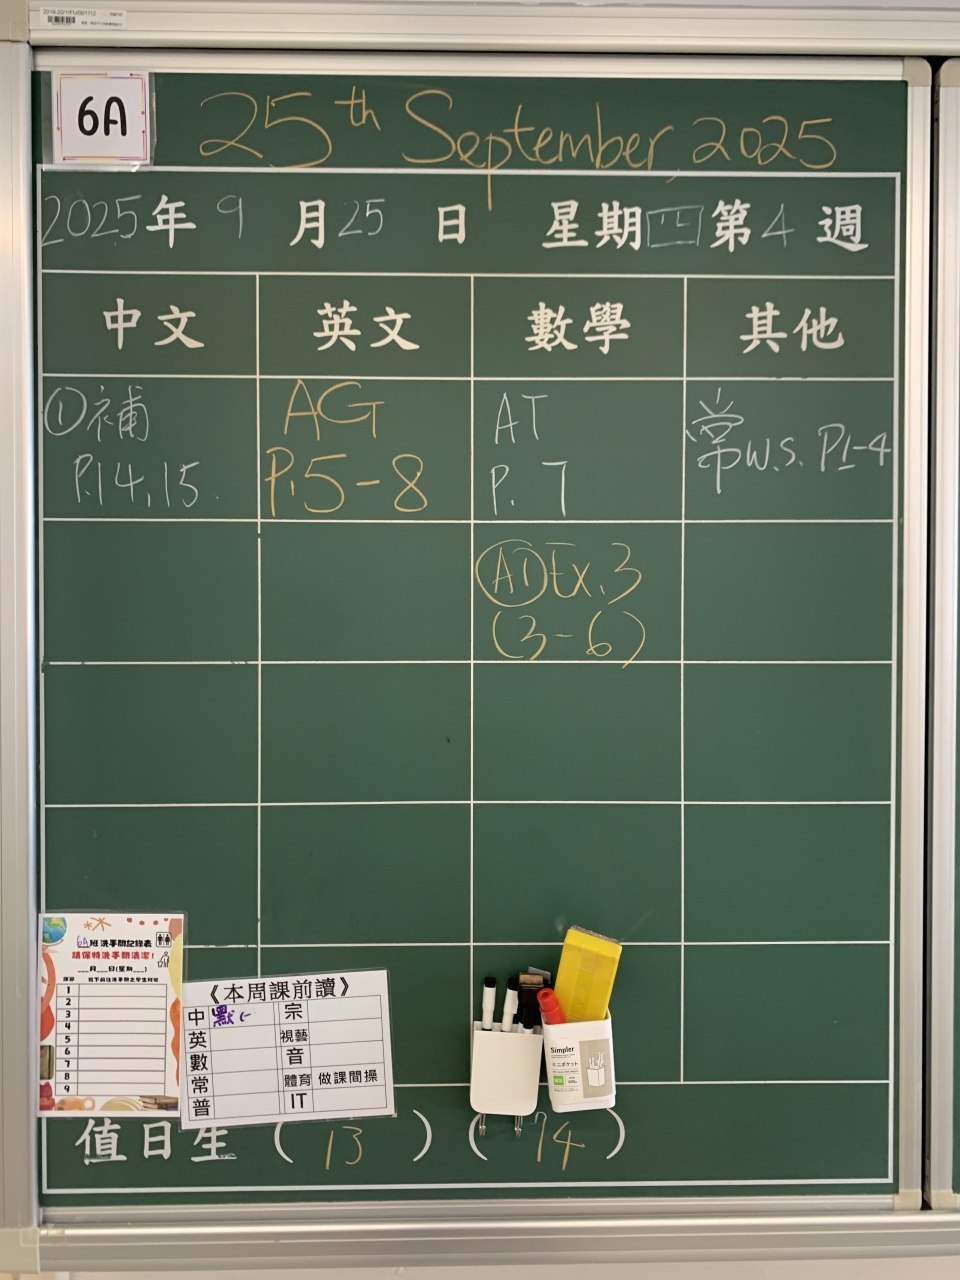 2019-20/1/FU/001112
6A
25th September, 2025
2025年 9 月 25 日 星期四 第 4 週
中文 英文 數學 其他
①補 P.14,15.
AG P.5-8
AT P.7
常 W.S. P1-4
AT Ex.3 (3-6)
6A班洗手間記錄表
請保持洗手間清潔!
___月___日(星期___)
課節 寫下前往洗手間之學生班號
1
2
3
4
5
6
7
8
9
《本周課前讀》
中 默(-) 宗
英 視藝
數 音
常 體育 做課間操
普 IT
Simpler
ミニポケット
值日生 ( 13 ) ( 14 )